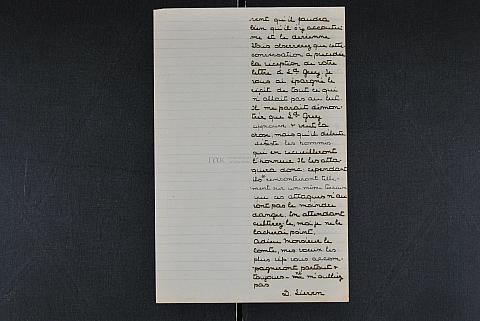 vent qu'il faudra
bien qu'il s'y accoutu
me et le devienne
Vous observerez que cette
conversation a précédée
la réception de votre
lettre à Ld Grey. Je
vous ai épargné le
récit de tout ce qui
n'allait pas au but.
Il me parait démon-
tré que Ld Grey
approuve + veut la
chose, mais qu'il déteste
déteste les hommes
qui en recueilleront
l'honneur. Il les atta
quera donc; cependant
ils rencontreront telle-
ment sur un même terrain
que ces attaques n'au
ront pas le moindre
danger. En attendant
cultivez-le, moi je ne le
lacherai point.
Adieu Monsieur le
Comte, mes voeux les
plus vifs vous accom-
pagneront partout +
toujours - ne m'oubliez
pas
D. Lieven